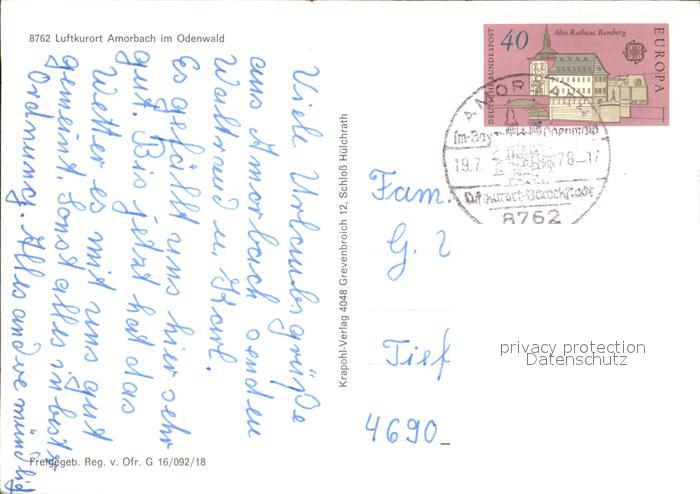 8762 Luftkurort Amorbach im Odenwald
Viele Urlaubsgrüße
aus Amorbach senden
Waltraud u. Karl.
Es gefällt uns hier sehr
gut. Bis jetzt hat das
Wetter es mit uns gut
gemeint. Sonst alles in bester
Ordnung. Alles andere mündlich
Freigegeb. Reg. v. Ofr. G 16/092/18
Krapohl-Verlag 4048 Grevenbroich 12, Schloß Hülchrath
DEUTSCHE BUNDESPOST
40
Altes Rathaus Bamberg
EUROPA
AMORBACH
Im Bayer. Odenwald
19.7. 78-17
Luftkurort-Barockstadt
8762
Fam.
G.
Tief
4690
privacy protection
Datenschutz